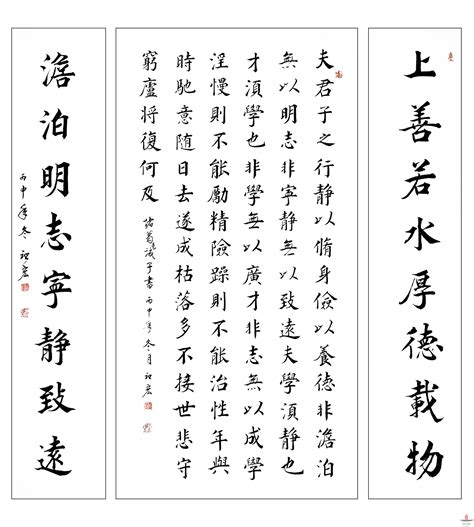 上善若水厚德載物
夫君子之行静以脩身儉以養德非澹泊
無以明志非寧静無以致遠夫學須静也
才須學也非學無以廣才非志無以成學
淫慢則不能勵精險躁則不能治性年與
時馳意随日去遂成枯落多不接世悲守
窮廬将復何及
諸葛誡子書 丙申年冬月
澹泊明志寧静致遠
丙申年冬